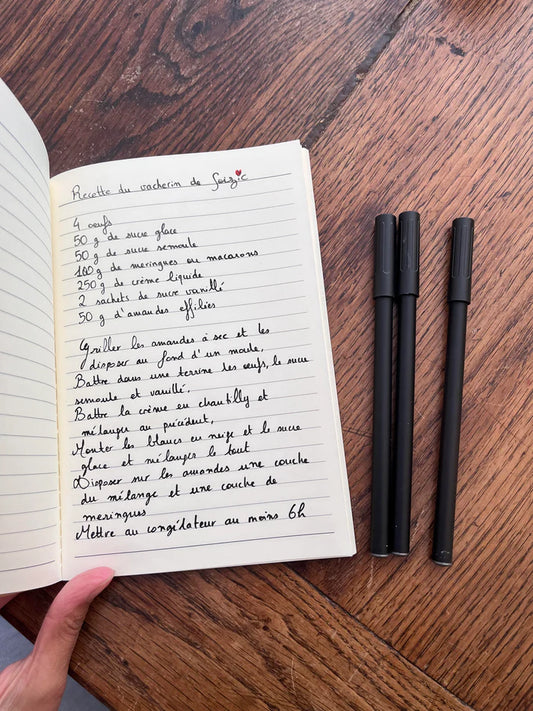 Recette du vacherin de Soizic
4 oeufs
50 g de sucre glace
50 g de sucre semoule
100 g de meringues ou macarons
250 g de crème liquide
2 sachets de sucre vanillé
50 g d'amandes effilées
Griller les amandes à sec et les
disposer au fond d'un moule,
Battre dans une terrine les oeufs, le sucre
semoule et vanillé,
Battre la crème en chantilly et
mélanger au précédent,
Monter les blancs en neige et le sucre
glace et mélanger le tout
Disposer sur les amandes une couche
du mélange et une couche de
meringues
Mettre au congélateur au moins 6h